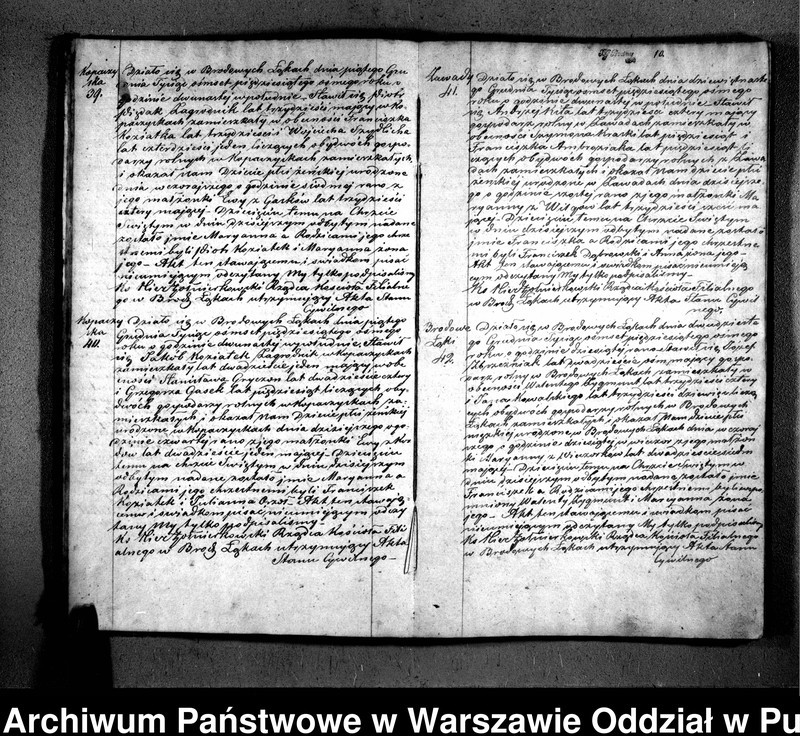 Kopaczys
ka
39.
Działo się w Brodowych Łąkach dnia piątego Gru
dnia Tysiąc ośmset pięćdziesiątego ósmego roku o
godzinie dwunastej w południe Stawił się Piotr
Zagrodnik lat trzydzieści mający w Ko
paczyskach zamieszkały w obecności Franciszka
Koziatka lat trzydzieści Wojciecha
lat czterdzieści jeden liczących obydwóch gospo
darzy rolnych w Kopaczyskach zamieszkałych
i okazał Nam Dziecię płci żeńskiej urodzone
dnia wczorajszego o godzinie siódmej rano z
jego małżonki Ewy z Gaców lat trzydzieści
cztery mającej – Dziecięciu temu na Chrzcie
Świętym w dniu dzisiejszym odbytym nadane
zostało imie Maryanna a Rodzicami jego chrze
stnemi byli Piotr Koziatek i Maryanna żona
jego – Akt ten stawającemu i świadkom pisać
nieumiejącym odczytany My tylko podpisaliśmy
Ks Rządca Kościoła Filialne
go w Brod. Łąkach utrzymujący Akta Stanu
Cywilnego
Kopaczys
ka
40.
Działo się w Brodowych Łąkach dnia piątego
Grudnia Tysiąc ośmset pięćdziesiątego ósmego
roku o godzinie dwunastej w południe Stawił
się Jakób Koziatek Zagrodnik w Kopaczyskach
zamieszkały lat dwadzieścia jeden mający w obe
cności Stanisława lat dwadzieścia cztery
i Grzegorza Gacek lat pięćdziesiąt liczących oby
dwóch gospodarzy rolnych w Kopaczyskach za
mieszkałych i okazał Nam Dziecię płci żeńskiej
urodzone w Kopaczyskach dnia dzisiejszego o go
dzinie czwartej rano z jego małżonki Ewy z
lat dwadzieścia jeden mającej – Dziecięciu
temu na chrzcie Świętym w dniu dzisiejszym
odbytym nadane zostało imie Maryanna a
Rodzicami jego chrzestnemi byli Franciszek
Koziatek i Julianna – Akt ten stawają
cemu i świadkom pisać nieumiejącym odczy
tany My tylko podpisaliśmy –
Ks Rządca Kościoła Fili
alnego w Brod. Łąkach utrzymujący Akta
Stanu Cywilnego –
10.
Zawady
41.
Działo się w Brodowych Łąkach dnia dziewiętnaste
go Grudnia Tysiąc ośmset pięćdziesiątego ósmego
roku o godzinie dwunastej w południe Stawił
się Andrzej lat trzydzieści cztery mający
gospodarz rolny w Zawadach zamieszkały w
obecności Szymona lat pięćdziesiąt i
Franciszka lat pięćdziesiąt li
czących obydwóch gospodarzy rolnych z Zawa
dach zamieszkałych i okazał Nam dziecię płci
żeńskiej urodzone w Zawadach dnia dzisiejsze
go o godzinie szóstej rano z jego małżonki Ma
ryanny z lat trzydzieści ma
jącej – Dziecięciu temu na Chrzcie Świętym
w Dniu dzisiejszym odbytym nadane zostało
imie Franciszka a Rodzicami jego chrzestne
mi byli Franciszek Dąbrowski i Anna żona jego –
Akt ten stawającemu i świadkom pisać nieumieją
cym odczytany My tylko podpisaliśmy –
Ks Rządca Kościoła Filialnego
w Brod. Łąkach utrzymujący Akta Stanu Cywil
nego.
Brodowe
Łąki
42.
Działo się w Brodowych Łąkach dnia dwudziesta
go Grudnia Tysiąc ośmset pięćdziesiątego ósmego
roku o godzinie dziesiątej rano Stawił się Józef
lat dwadzieścia ośm mający gospo
darz rolny w Brodowych Łąkach zamieszkały w
obecności Walentego Zygmunt lat trzydzieści cztery
i Kowalskiego lat trzydzieści dziewięć licza
cych obydwóch gospodarzy rolnych w Brodowych
Łąkach zamieszkałych i okazał Nam dziecię płci
męzkiej urodzone w Brodowych Łąkach dnia wczoraj
szego o godzinie dziesiątej w wieczor z jego małżon
ki Maryanny z lat dwadzieścia siedm
mającej – Dziecięciu temu na Chrzcie Świętym w
dniu dzisiejszym odbytym nadane zostało imie
Franciszek a Rodzicami jego chrzestnemi byli wspo
mniony Walenty Zygmunt i Maryanna żona
jego – Akt ten stawającemu i świadkom pisać
nieumiejącym odczytany My tylko podpisaliśmy
Ks Rządca Kościoła Filialnego
w Brodowych Łąkach utrzymujący Akta Stanu
Cywilnego
Archiwum Państwowe w Warszawie Oddział w Pu